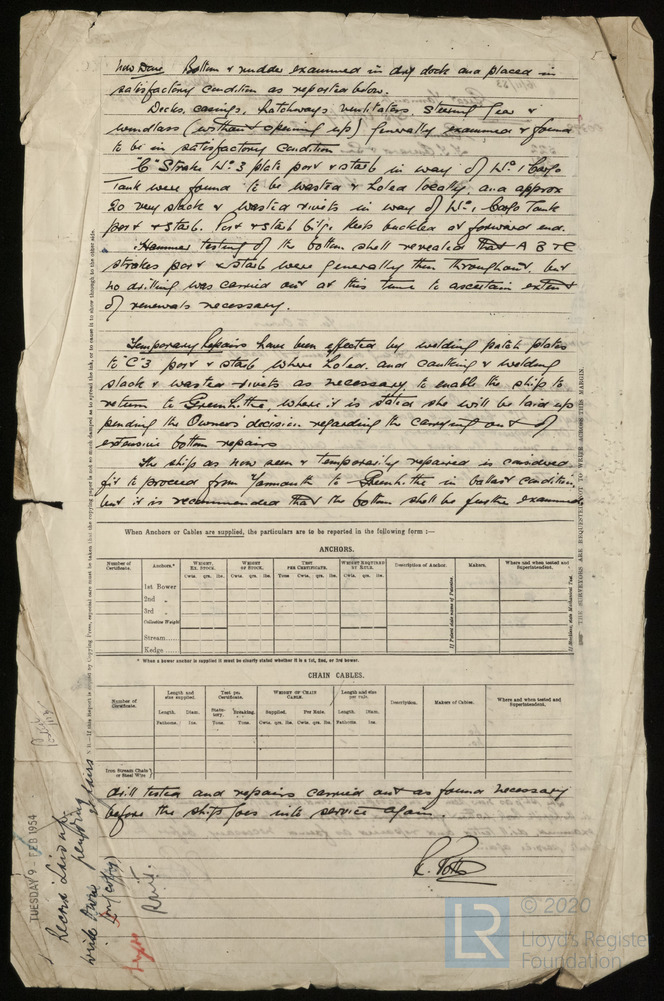 Now Done Bottom & rudder examined in dry dock and placed in
satisfactory condition as reported below.
Decks, casings, hatchways ventilators, steering gear &
windlass (without opening up) generally examined & found
to be in satisfactory condition
"C" Strake No. 3 plate port & starb in way of No. 1 Cargo
Tank were found to be wasted & holed locally, and approx
20 very slack & wasted rivets in way of No. 1 Cargo Tank
port & starb. Port & starb bilge keels buckled at forward end.
Hammer testing of the bottom shell revealed that A B & C
strakes port & starb were generally thin throughout, but
no drilling was carried out at this time to ascertain extent
of renewals necessary.
Temporary Repairs have been effected by welding patch plates
to "C" 3 port & starb where holed and caulking & welding
slack & wasted rivets as necessary to enable the ship to
return to Greenhithe, where it is stated she will be laid up
pending the Owners decision regarding the carrying out of
extensive bottom repairs
The ship as now seen & temporarily repaired is considered
fit to proceed from Yarmouth to Greenhithe in ballast condition,
but it is recommended that the bottom shell be further examined
When Anchors or Cables are supplied, the particulars are to be reported in the following form :—
ANCHORS.
Number of Certificate. Anchors.* WEIGHT, EX. STOCK. WEIGHT OF STOCK. TEST PER CERTIFICATE. WEIGHT REQUIRED BY RULE. Description of Anchor. Makers. Where and when tested and Superintendent.
Cwts. qrs. lbs. Cwts. qrs. lbs. Tons. Cwts. qrs. lbs. Cwts. qrs. lbs.
1st Bower
2nd „
3rd „
Collective Weight
Stream
Kedge
* When a bower anchor is supplied it must be clearly stated whether it is a 1st, 2nd, or 3rd bower.
CHAIN CABLES.
Number of Certificate. Length and size supplied. Test per Certificate. WEIGHT OF CHAIN CABLE. Length and size per rule. Description. Makers of Cables. Where and when tested and Superintendent.
Length. Diam. Statutory. Breaking. Supplied. Per Rule. Length. Diam.
Fathoms. Ins. Tons. Tons. Cwts. qrs. lbs. Cwts. qrs. lbs. Fathoms. Ins.
Iron Stream Chain or Steel Wire
drill tested and repairs carried out as found necessary
before the ship goes into service again.
N.B.—If this Report is copied by Copying Press, especial care must be taken that the copying paper is not so much damped as to spread the ink, or to cause it to show through to the other side.
THE SURVEYORS ARE REQUESTED NOT TO WRITE ACROSS THIS MARGIN.
TUESDAY 9 FEB 1954
Record Laid up
pending
repairs
LR
© 2020
Lloyd's Register
Foundation